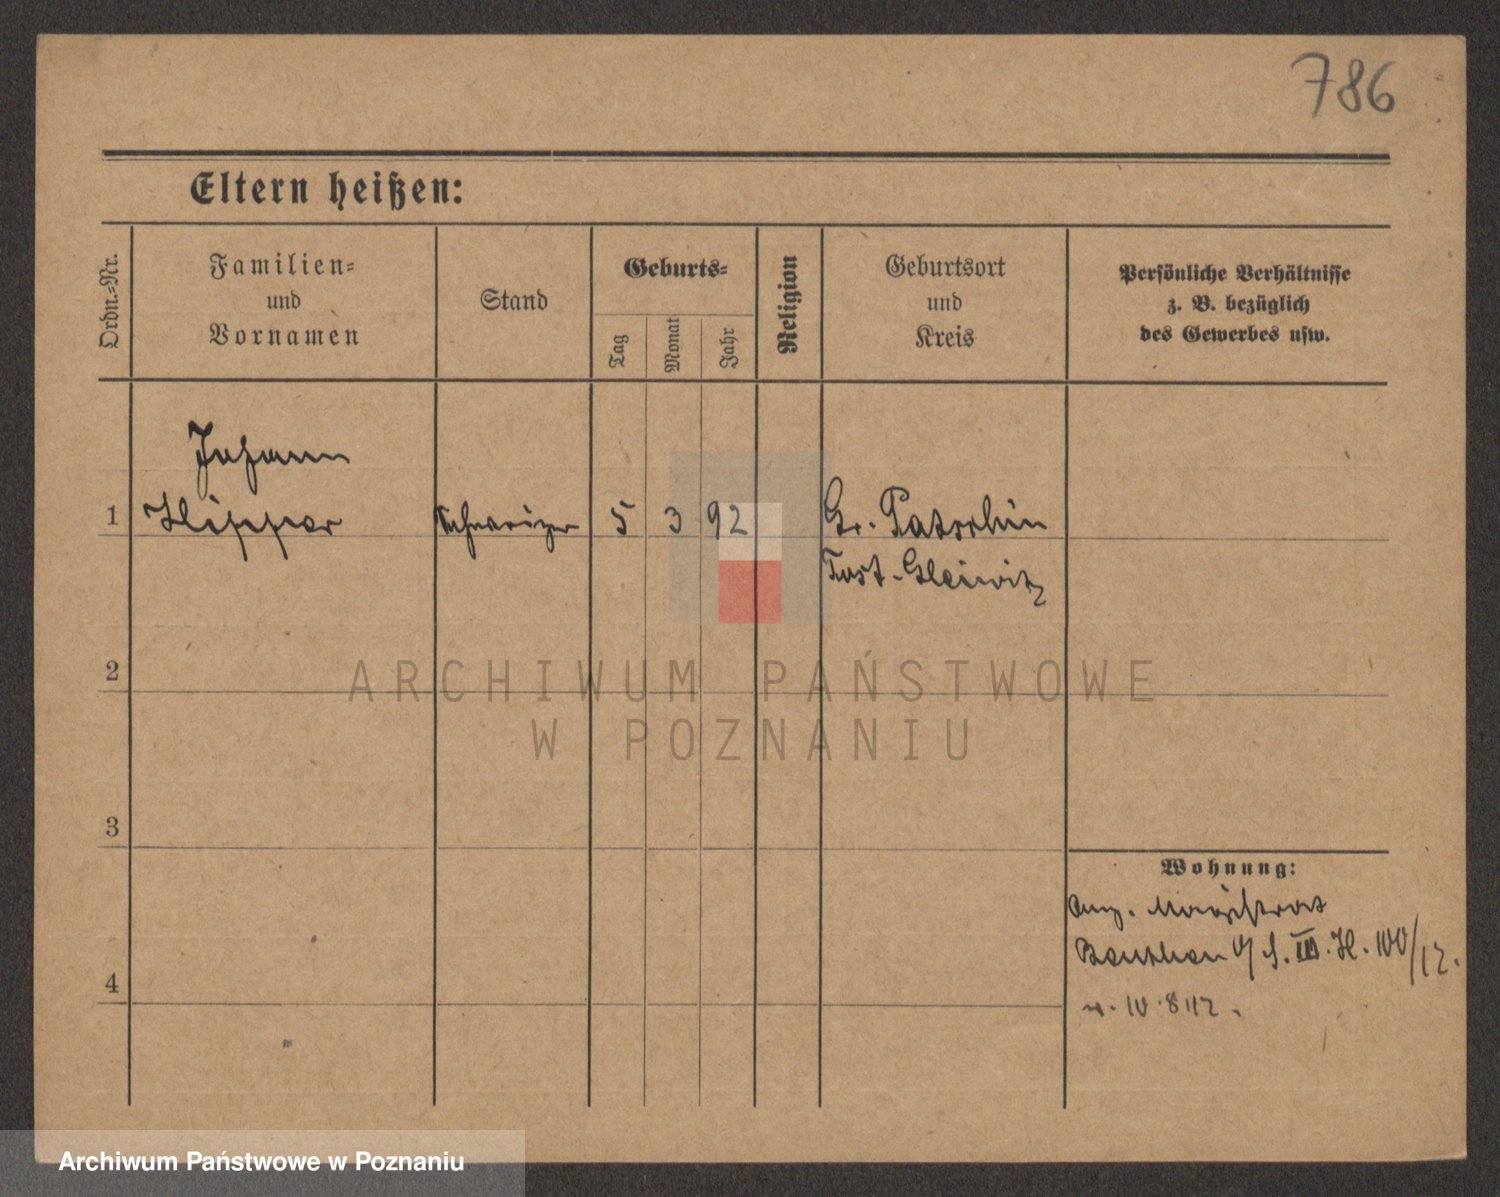 786
Eltern heißen:
Ordn.-Nr.
Familien-
und
Vornamen
Stand
Geburts-
Tag
Monat
Jahr
Religion
Geburtsort
und
Kreis
Persönliche Verhältnisse
z. B. bezüglich
des Gewerbes usw.
Johann
1 Schweizer 5 3 92 Gr. Patschin
Tost-Gleiwitz
2
3
4
Wohnung:
Magistrat
Beuthen O/S. III. H. 100/12.
v. 10.8.12.
ARCHIWUM PAŃSTWOWE
W POZNANIU
Archiwum Państwowe w Poznaniu